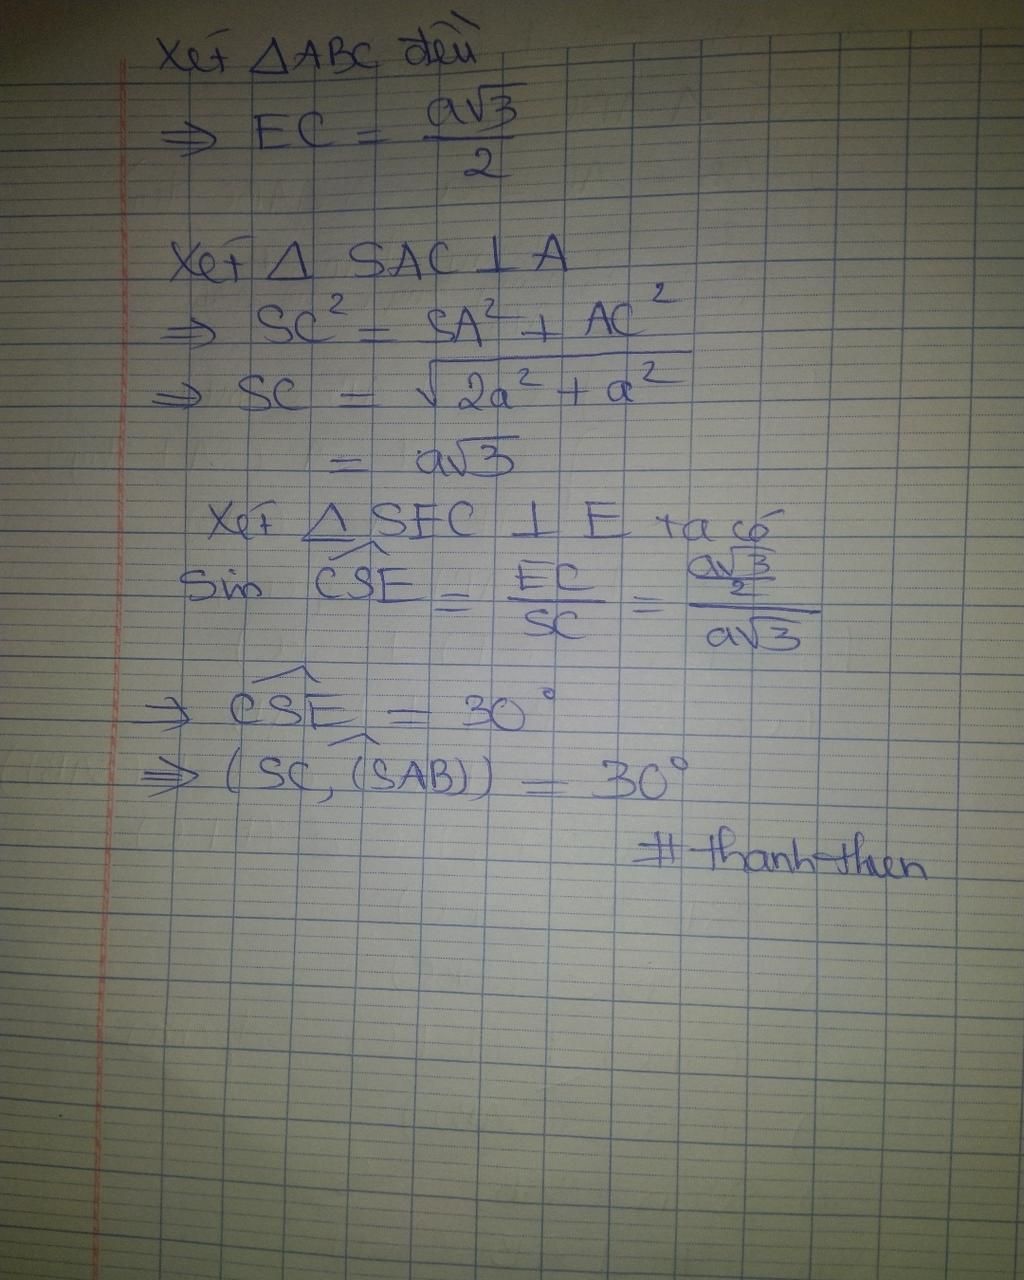 Xét ΔABC đều
⇒ EC = a√3/2
Xét Δ SAC ⊥ A
⇒ SC² = SA² + AC²
⇒ SC = √(2a² + a²)
= a√3
Xét Δ SEC ⊥ E ta có
Sin CSE = EC/SC = (a√3/2)/(a√3)
⇒ CSE = 30°
⇒ (SC, (SAB)) = 30°
# thanh-thien